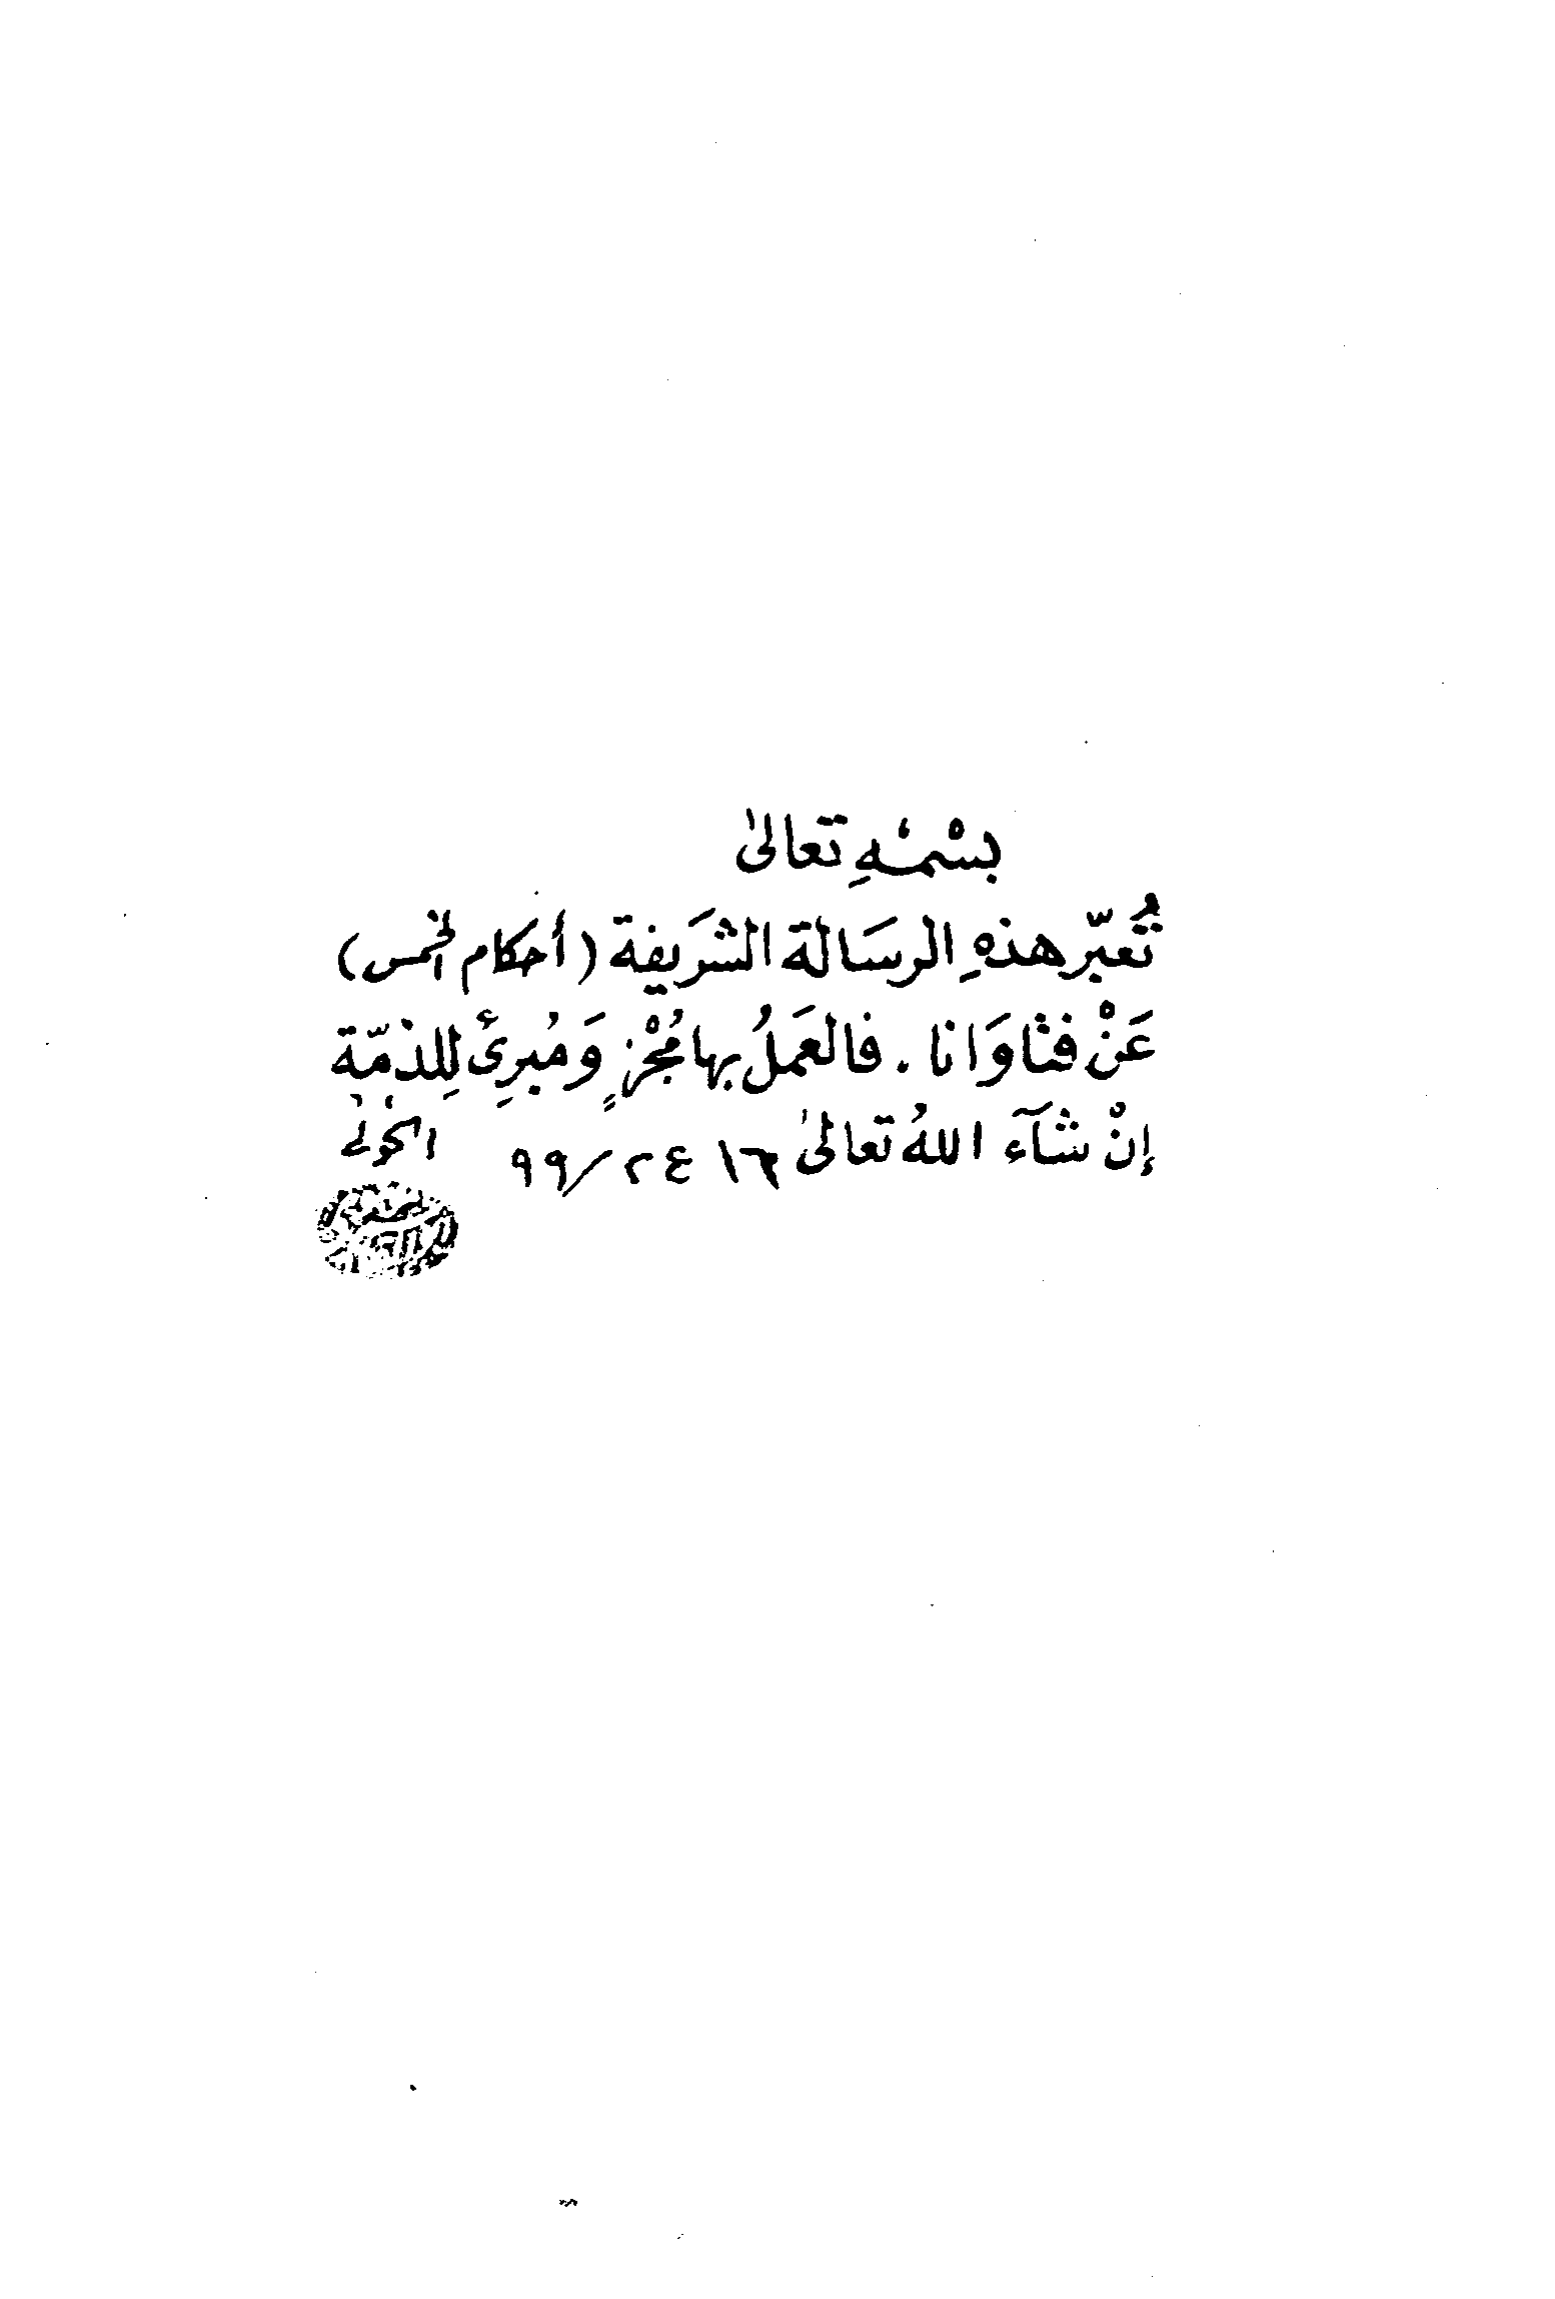 بِسْمِهِ تعالىٰ
تُعبّر هذهِ الرسَالة الشرَيفة (أحكام الخمس)
عَنْ فتاوَانا . فالعَملُ بها مُجْزٍ وَ مُبرِئُ لِلذمّة
إنْ شآء اللهُ تعالىٰ ١٦ ع ٢/ ٩٩ الخوئي